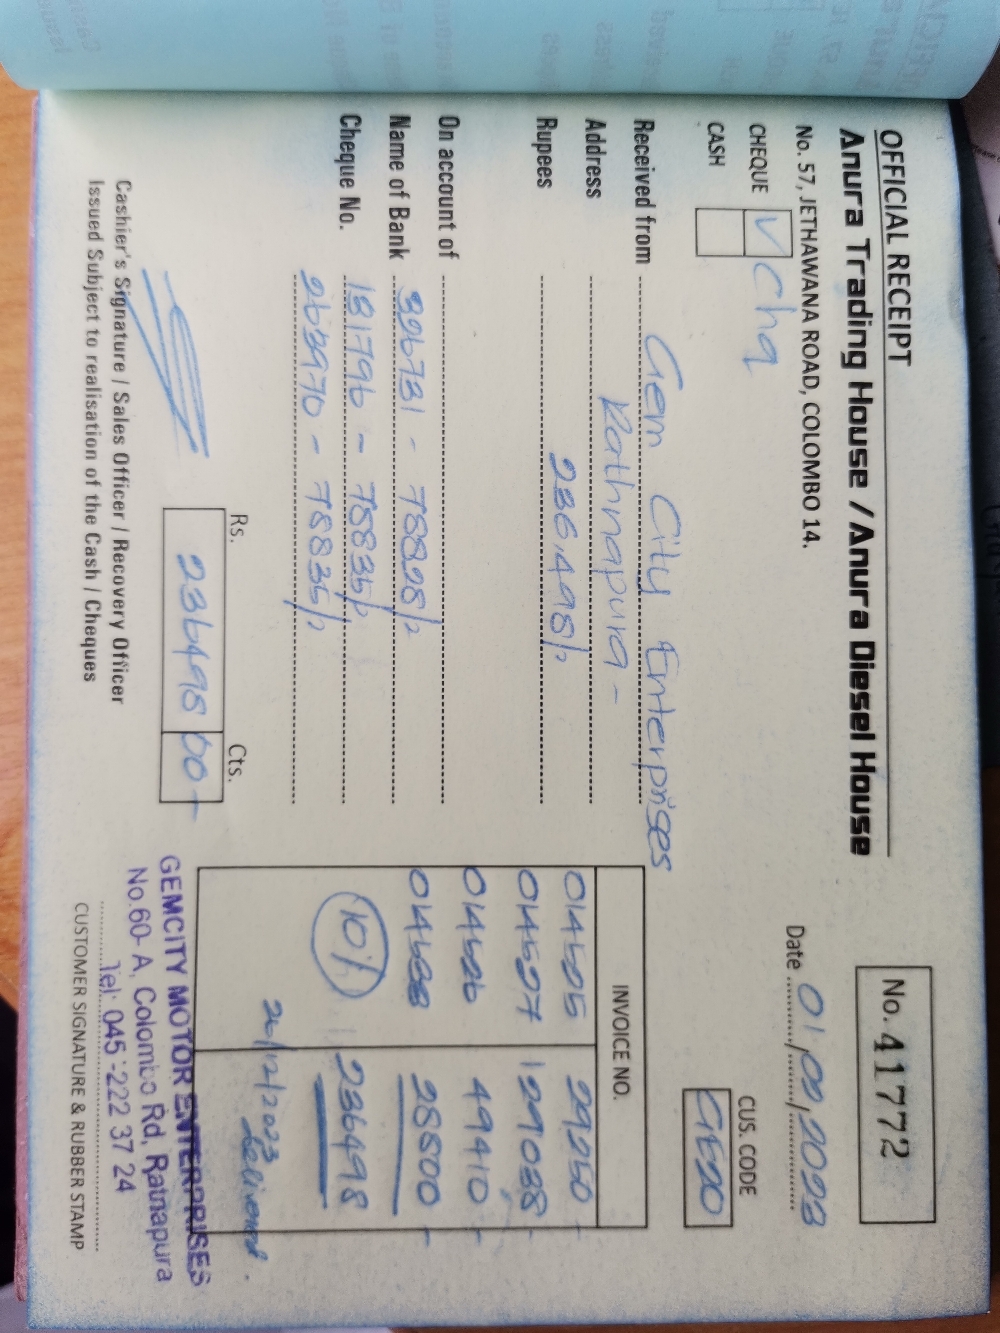 OFFICIAL RECEIPT
Anura Trading House / Anura Diesel House
No. 57, JETHAWANA ROAD, COLOMBO 14.
No. 41772
CHEQUE V Chq
CASH
Date 01/09/2023
CUS. CODE
GE20
Received from Gem City Enterprises
Address Rathnapura -
Rupees 236,498/=
On account of
Name of Bank 396731 - 78828/=
Cheque No. 181796 - 78835/=
263970 - 78835/=
INVOICE NO.
014525 29250 -
014527 129038 -
014526 49410 -
014588 28800 -
10% 236498
26/12/2023
Rs. Cts.
236498 00
Cashier's Signature / Sales Officer / Recovery Officer
Issued Subject to realisation of the Cash / Cheques
GEMCITY MOTOR ENTERPRISES
No.60- A, Colombo Rd, Ratnapura
Tel: 045 -222 37 24
CUSTOMER SIGNATURE & RUBBER STAMP